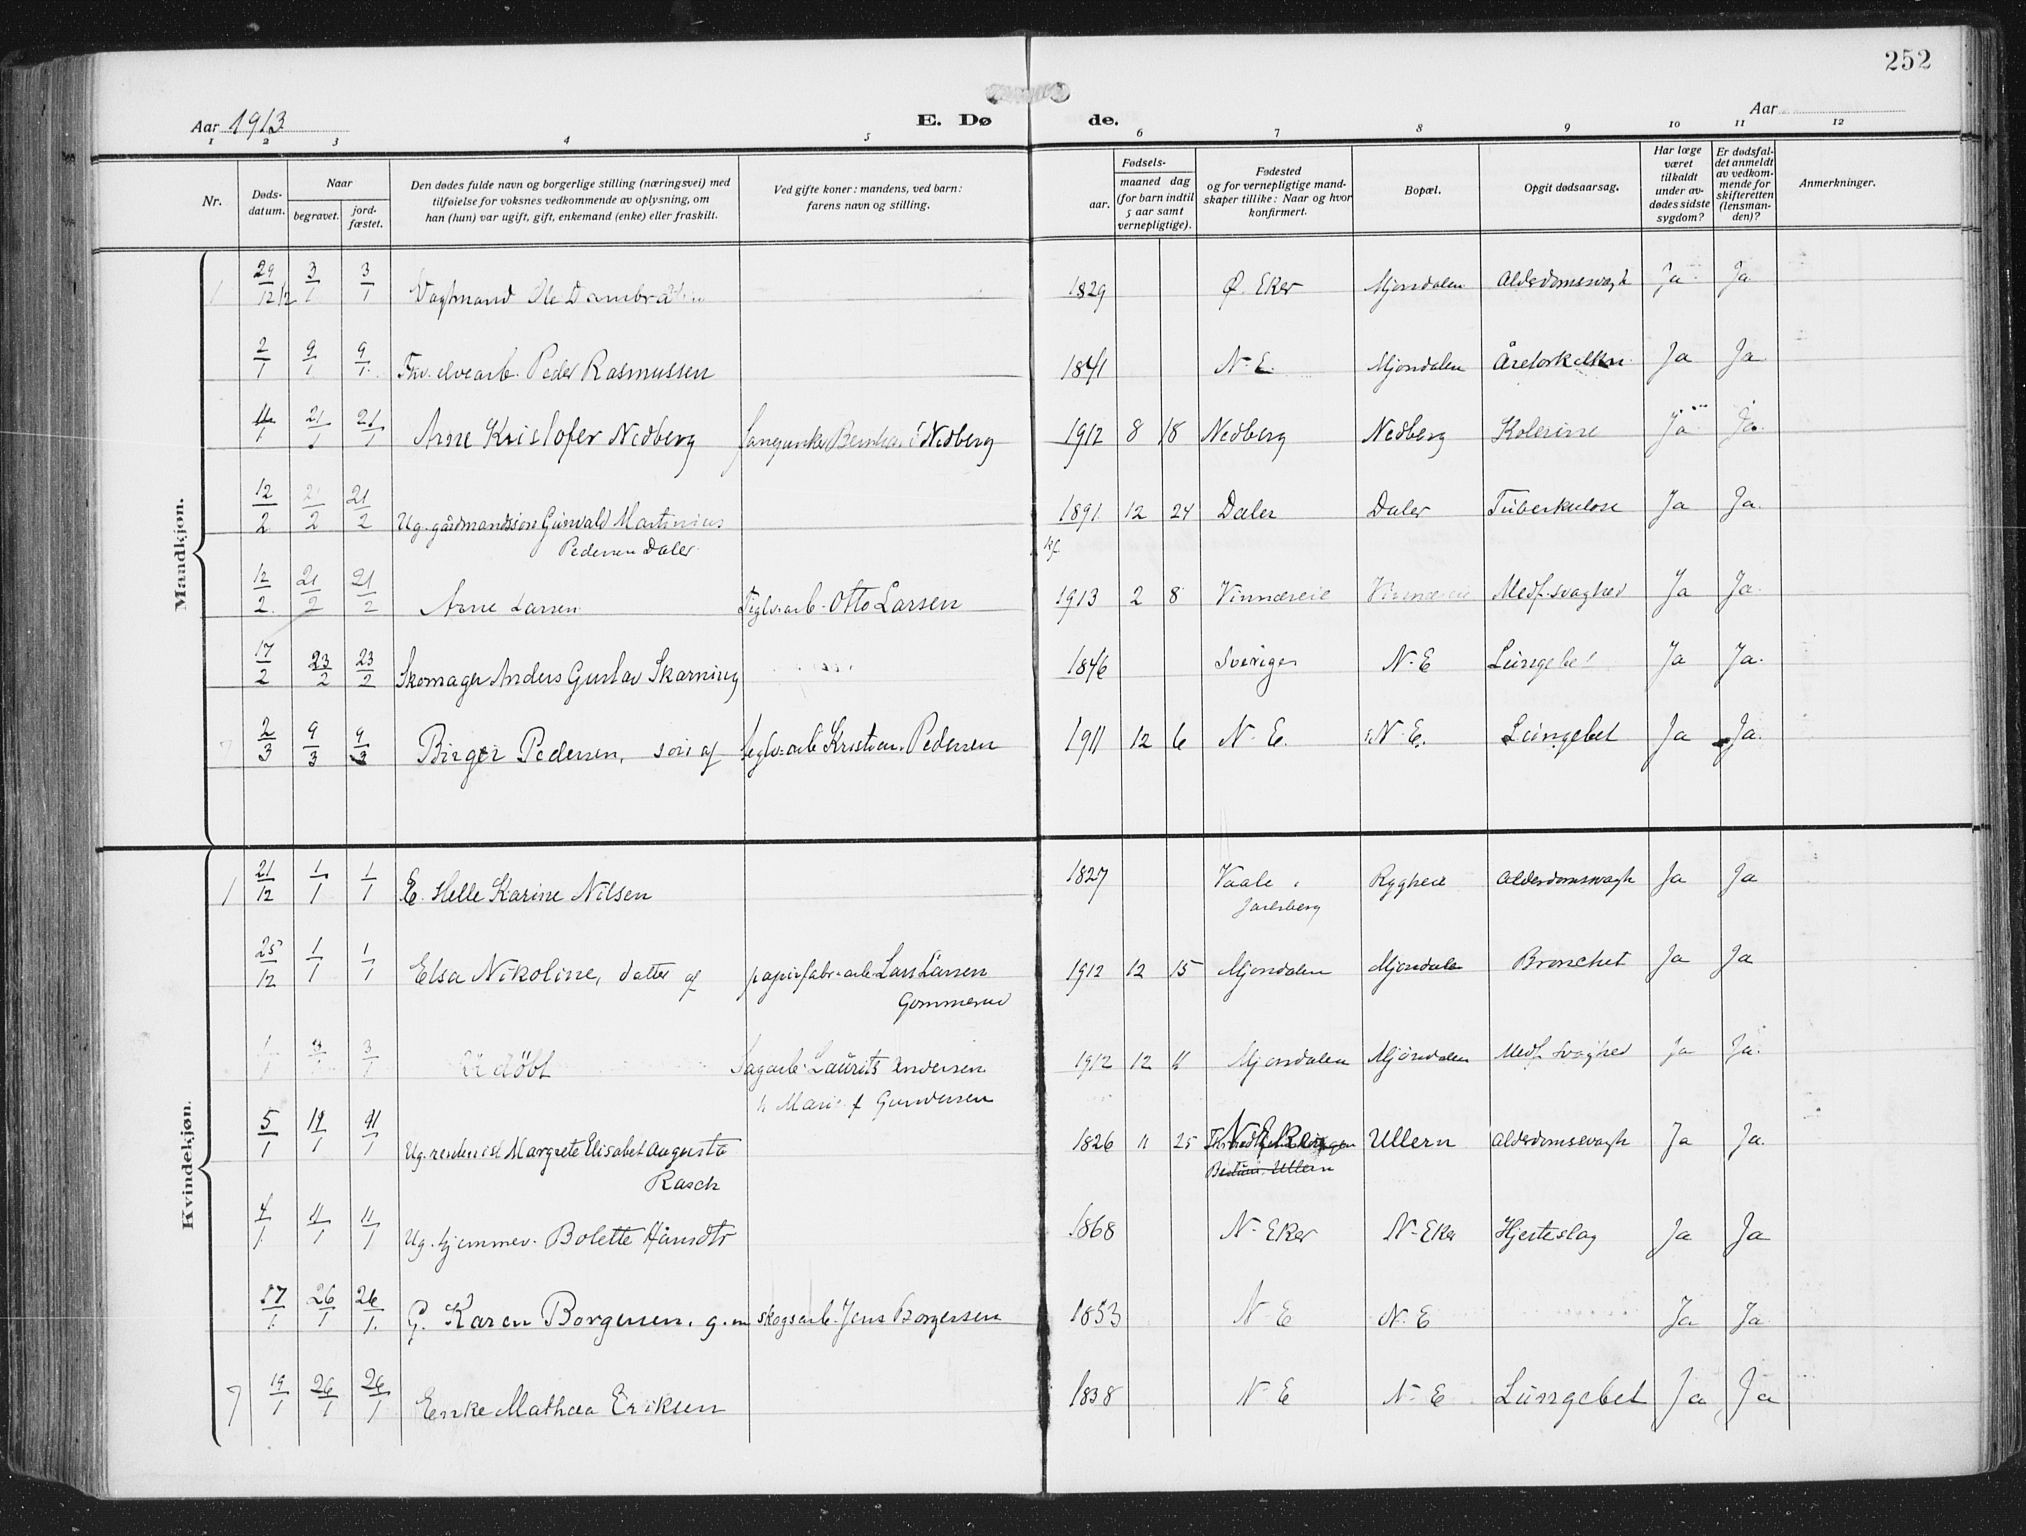 252
Aar 1913
E. Dø
de.
Aar
1 2 3 4 5 6 7 8 9 10 11 12
Nr.
Døds-
datum.
Naar
begravet.
jord-
fæstet.
Den dødes fulde navn og borgerlige stilling (næringsvei) med
tilføielse for voksnes vedkommende av oplysning, om
han (hun) var ugift, gift, enkemand (enke) eller fraskilt.
Ved gifte koner: mandens, ved barn:
farens navn og stilling.
Fødsels-
aar.
maaned dag
(for barn indtil
5 aar samt
vernepligtige).
Fødested
og for vernepligtige mand-
skaper tillike: Naar og hvor
konfirmert.
Bopæl.
Opgit dødsaarsag.
Har læge
været
tilkaldt
under av-
dødes sidste
sygdom?
Er dødsfal-
det anmeldt
av vedkom-
mende for
skifteretten
(lensman-
den)?
Anmerkninger.
Mandkjøn.
1 29/12 12 3/1 3/1 Vagtmand Ole 1829 Ø. Eker Mjøndalen Alderdomssvagh Ja Ja
2/1 9/1 9/1 Fhv. elvearb. Peder Rasmussen 1841 N-E. Mjøndalen Ja Ja
11/1 21/1 21/1 Arne Kristofer Nedberg Nedberg 1912 8 18 Nedberg Nedberg Kolerine Ja Ja.
12/2 21/2 21/2 Ug. gårdmandssøn Gunvald Martinius 1891 12 24 Daler Daler Tuberkulose Ja Ja.
Pedersen Daler
12/2 21/2 21/2 Arne Larsen Teglv-arb. Otto Larsen 1913 2 8 Vinnæseie Vinnæseie Medf. svaghed Ja Ja.
17/2 23/2 23/2 Skomager Anders Gustav Skarning 1846 Sverige N-E Lungebet Ja Ja.
7 2/3 9/3 9/3 Birger Pedersen, søn af Teglv-arb Kristian Pedersen 1911 12 6 N. E. N-E. Lungebet Ja Ja.
Kvindekjøn.
1 21/12 1/1 1/1 E. Helle Karine Nilsen 1827 Vaale i Rygheie Alderdomssvagh Ja Ja
Jarlsberg
25/12 1/1 1/1 Elsa Nikoline, datter af papirfabr-arb Lars Larsen 1912 12 15 Mjøndalen Mjøndale Bronchet Ja Ja
Gommerud
1/1 3/1 3/1 Udöbt Sagarb. Laurits Andersen 1912 12 11 Mjøndalen Mjøndalen Medf. svaghed Ja Ja.
h. Marie f. Gundersen
5/1 11/1 11/1 Ug. Margrete Elisabet Augusta 1826 11 25 N. Eker Ullern Alderdomssvagh Ja Ja.
Rasch Ullern
4/1 11/1 11/1 Ug. hjemmev. Bolette 1868 N-Eker N-Eker Hjerteslag Ja Ja
17/1 26/1 26/1 G. Karen Borgersen. g. m skogsarb. Jens Borgersen 1853 N-E N-E Ja Ja.
7 19/1 26/1 26/1 Enke Mathea Eriksen 1838 N-E N-E Lungebet Ja Ja